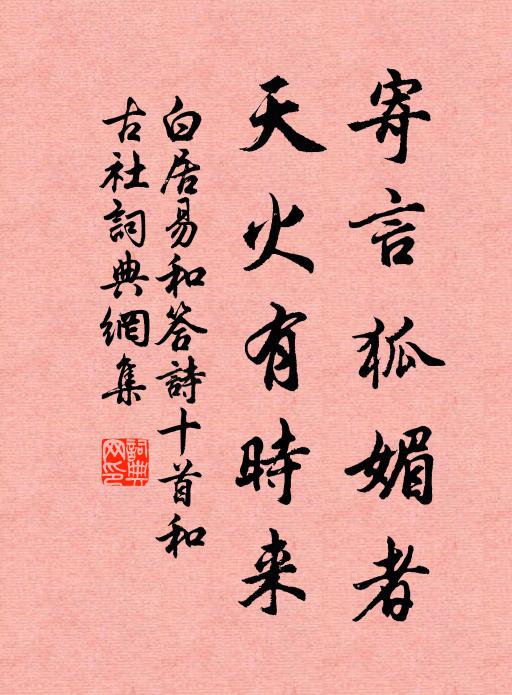 寄言狐媚者
天火有時来
白居易和答詩十首和
古社詞典網集
詞典
网印